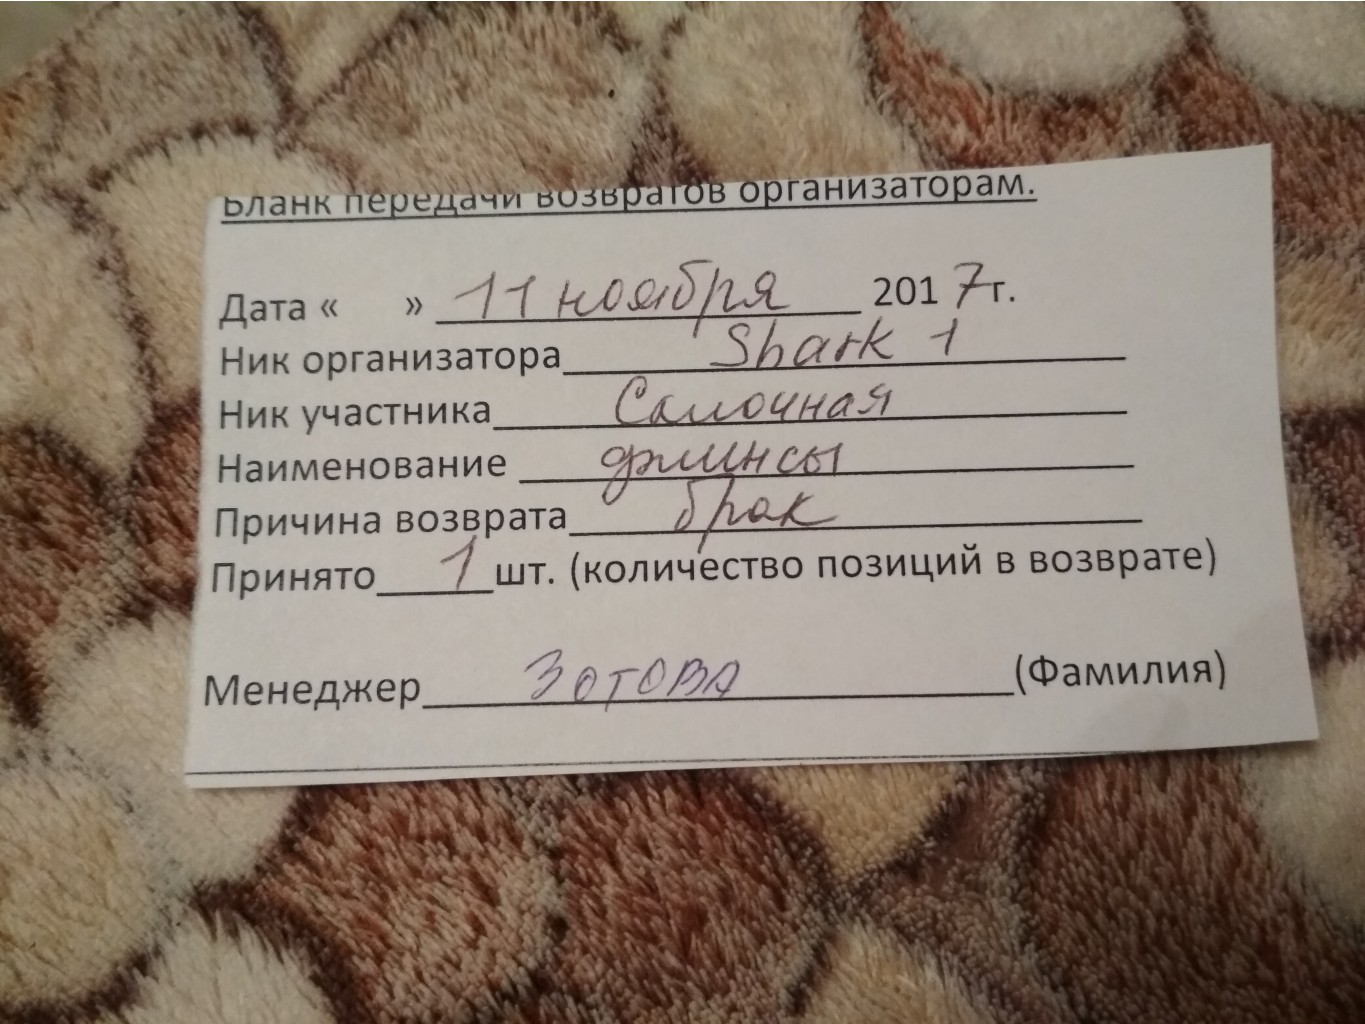 Бланк передачи возвратов организаторам.
Дата « » 11 ноября 2017г.
Ник организатора Shark 1
Ник участника Салочная
Наименование джинсы
Причина возврата брак
Принято 1 шт. (количество позиций в возврате)
Менеджер Зотова (Фамилия)